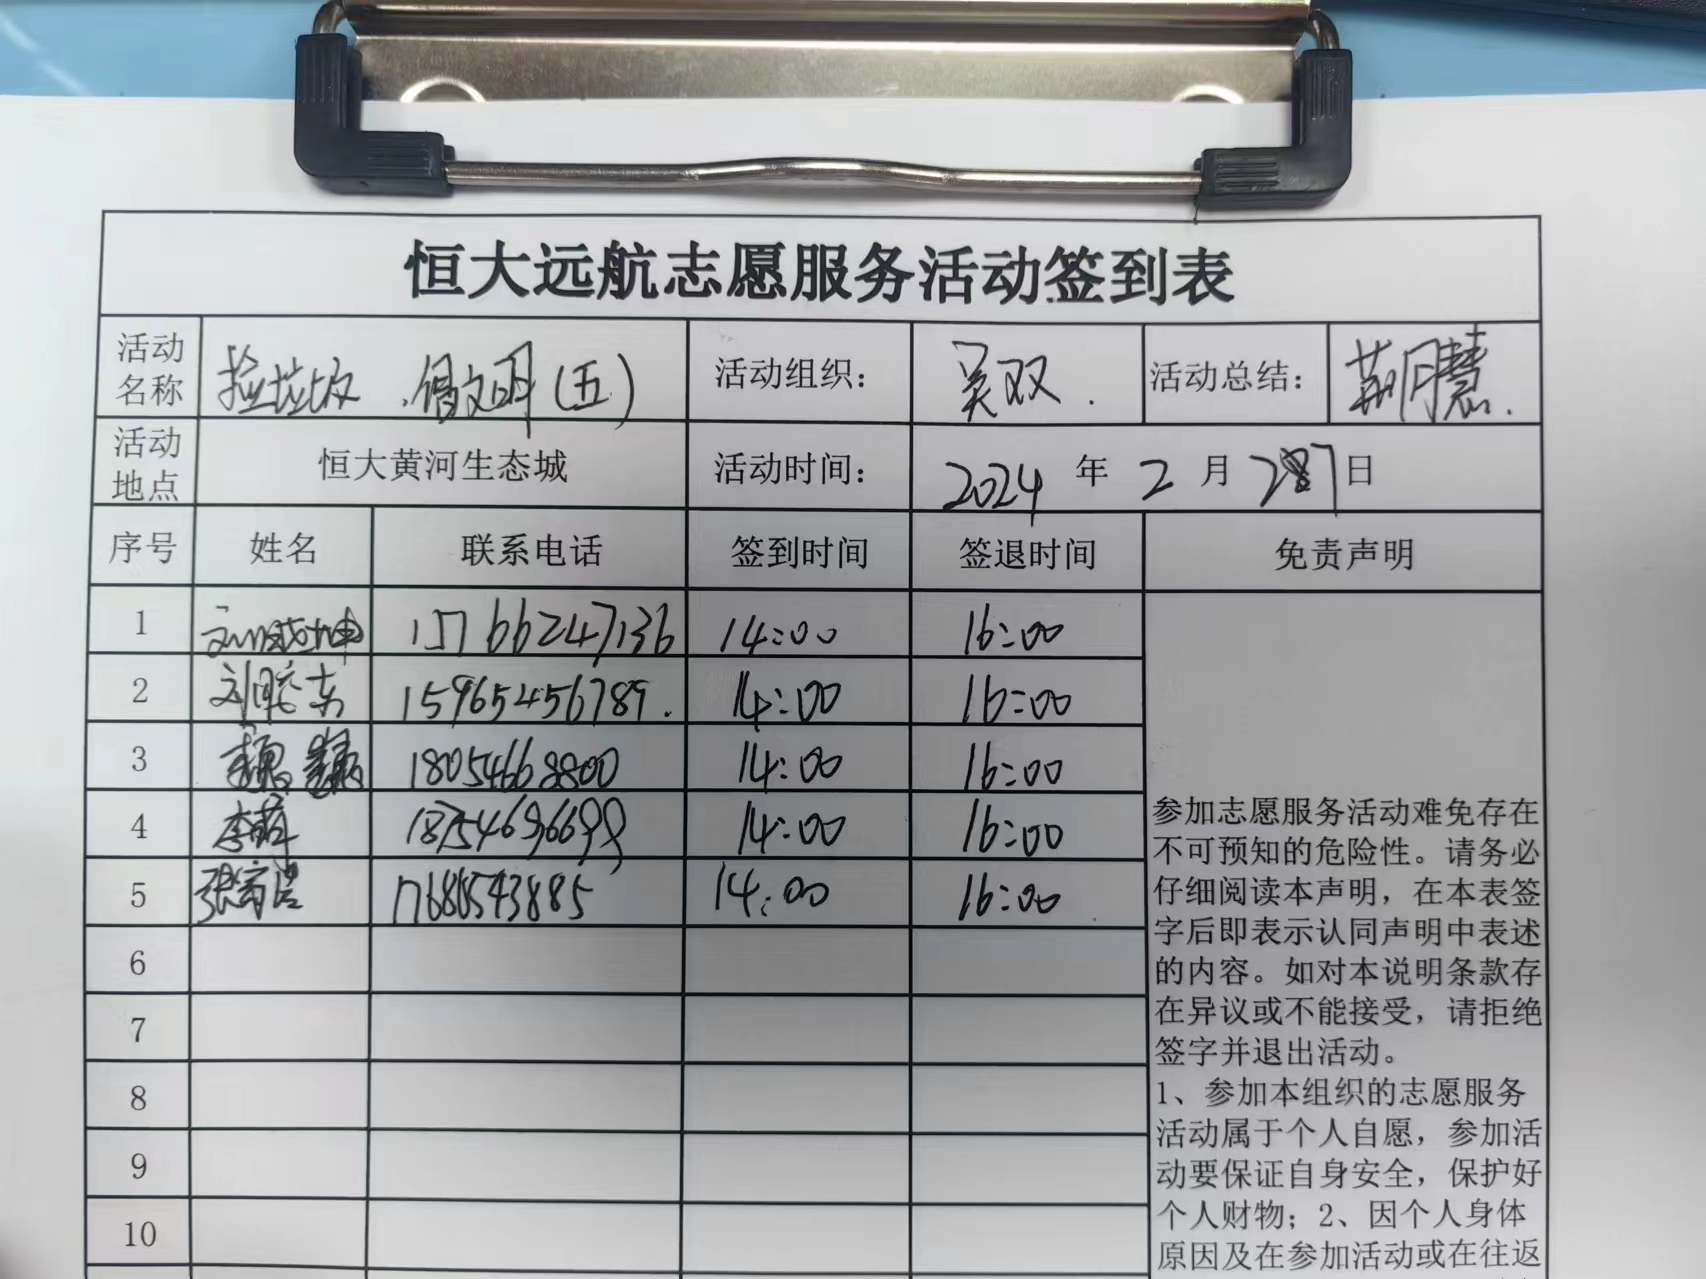 恒大远航志愿服务活动签到表
活动名称 捡垃圾.倡文明(五) 活动组织: 吴双. 活动总结:
活动地点 恒大黄河生态城 活动时间: 2024 年 2 月 日
序号 姓名 联系电话 签到时间 签退时间 免责声明
1 15766247136 14:00 16:00
2 刘晓东 15965456789. 14:00 16:00
3 18054668800 14:00 16:00
4 李萍 18754696699 14:00 16:00
5 14:00 16:00
6
7
8
9
10
参加志愿服务活动难免存在
不可预知的危险性。请务必
仔细阅读本声明，在本表签
字后即表示认同声明中表述
的内容。如对本说明条款存
在异议或不能接受，请拒绝
签字并退出活动。
1、参加本组织的志愿服务
活动属于个人自愿，参加活
动要保证自身安全，保护好
个人财物；2、因个人身体
原因及在参加活动或在往返